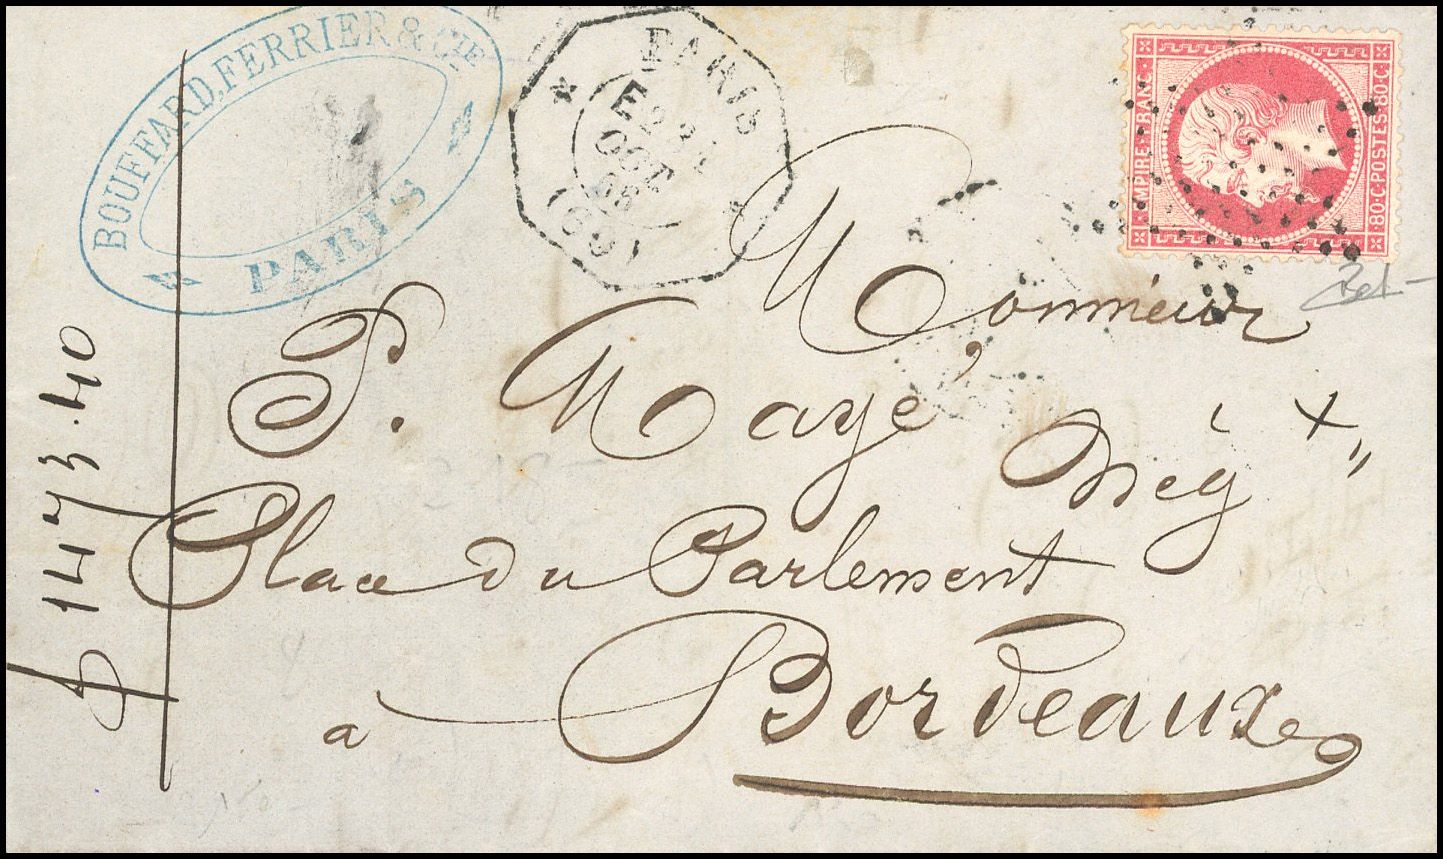 BOUFFARD, FERRIER & CIE
PARIS
PARIS
E2
OCT
(60)
EMPIRE FRANC
80·C·POSTES·80·C
Monsieur
P. Maye, Nég
Place du Parlement
à Bordeaux
1473.40